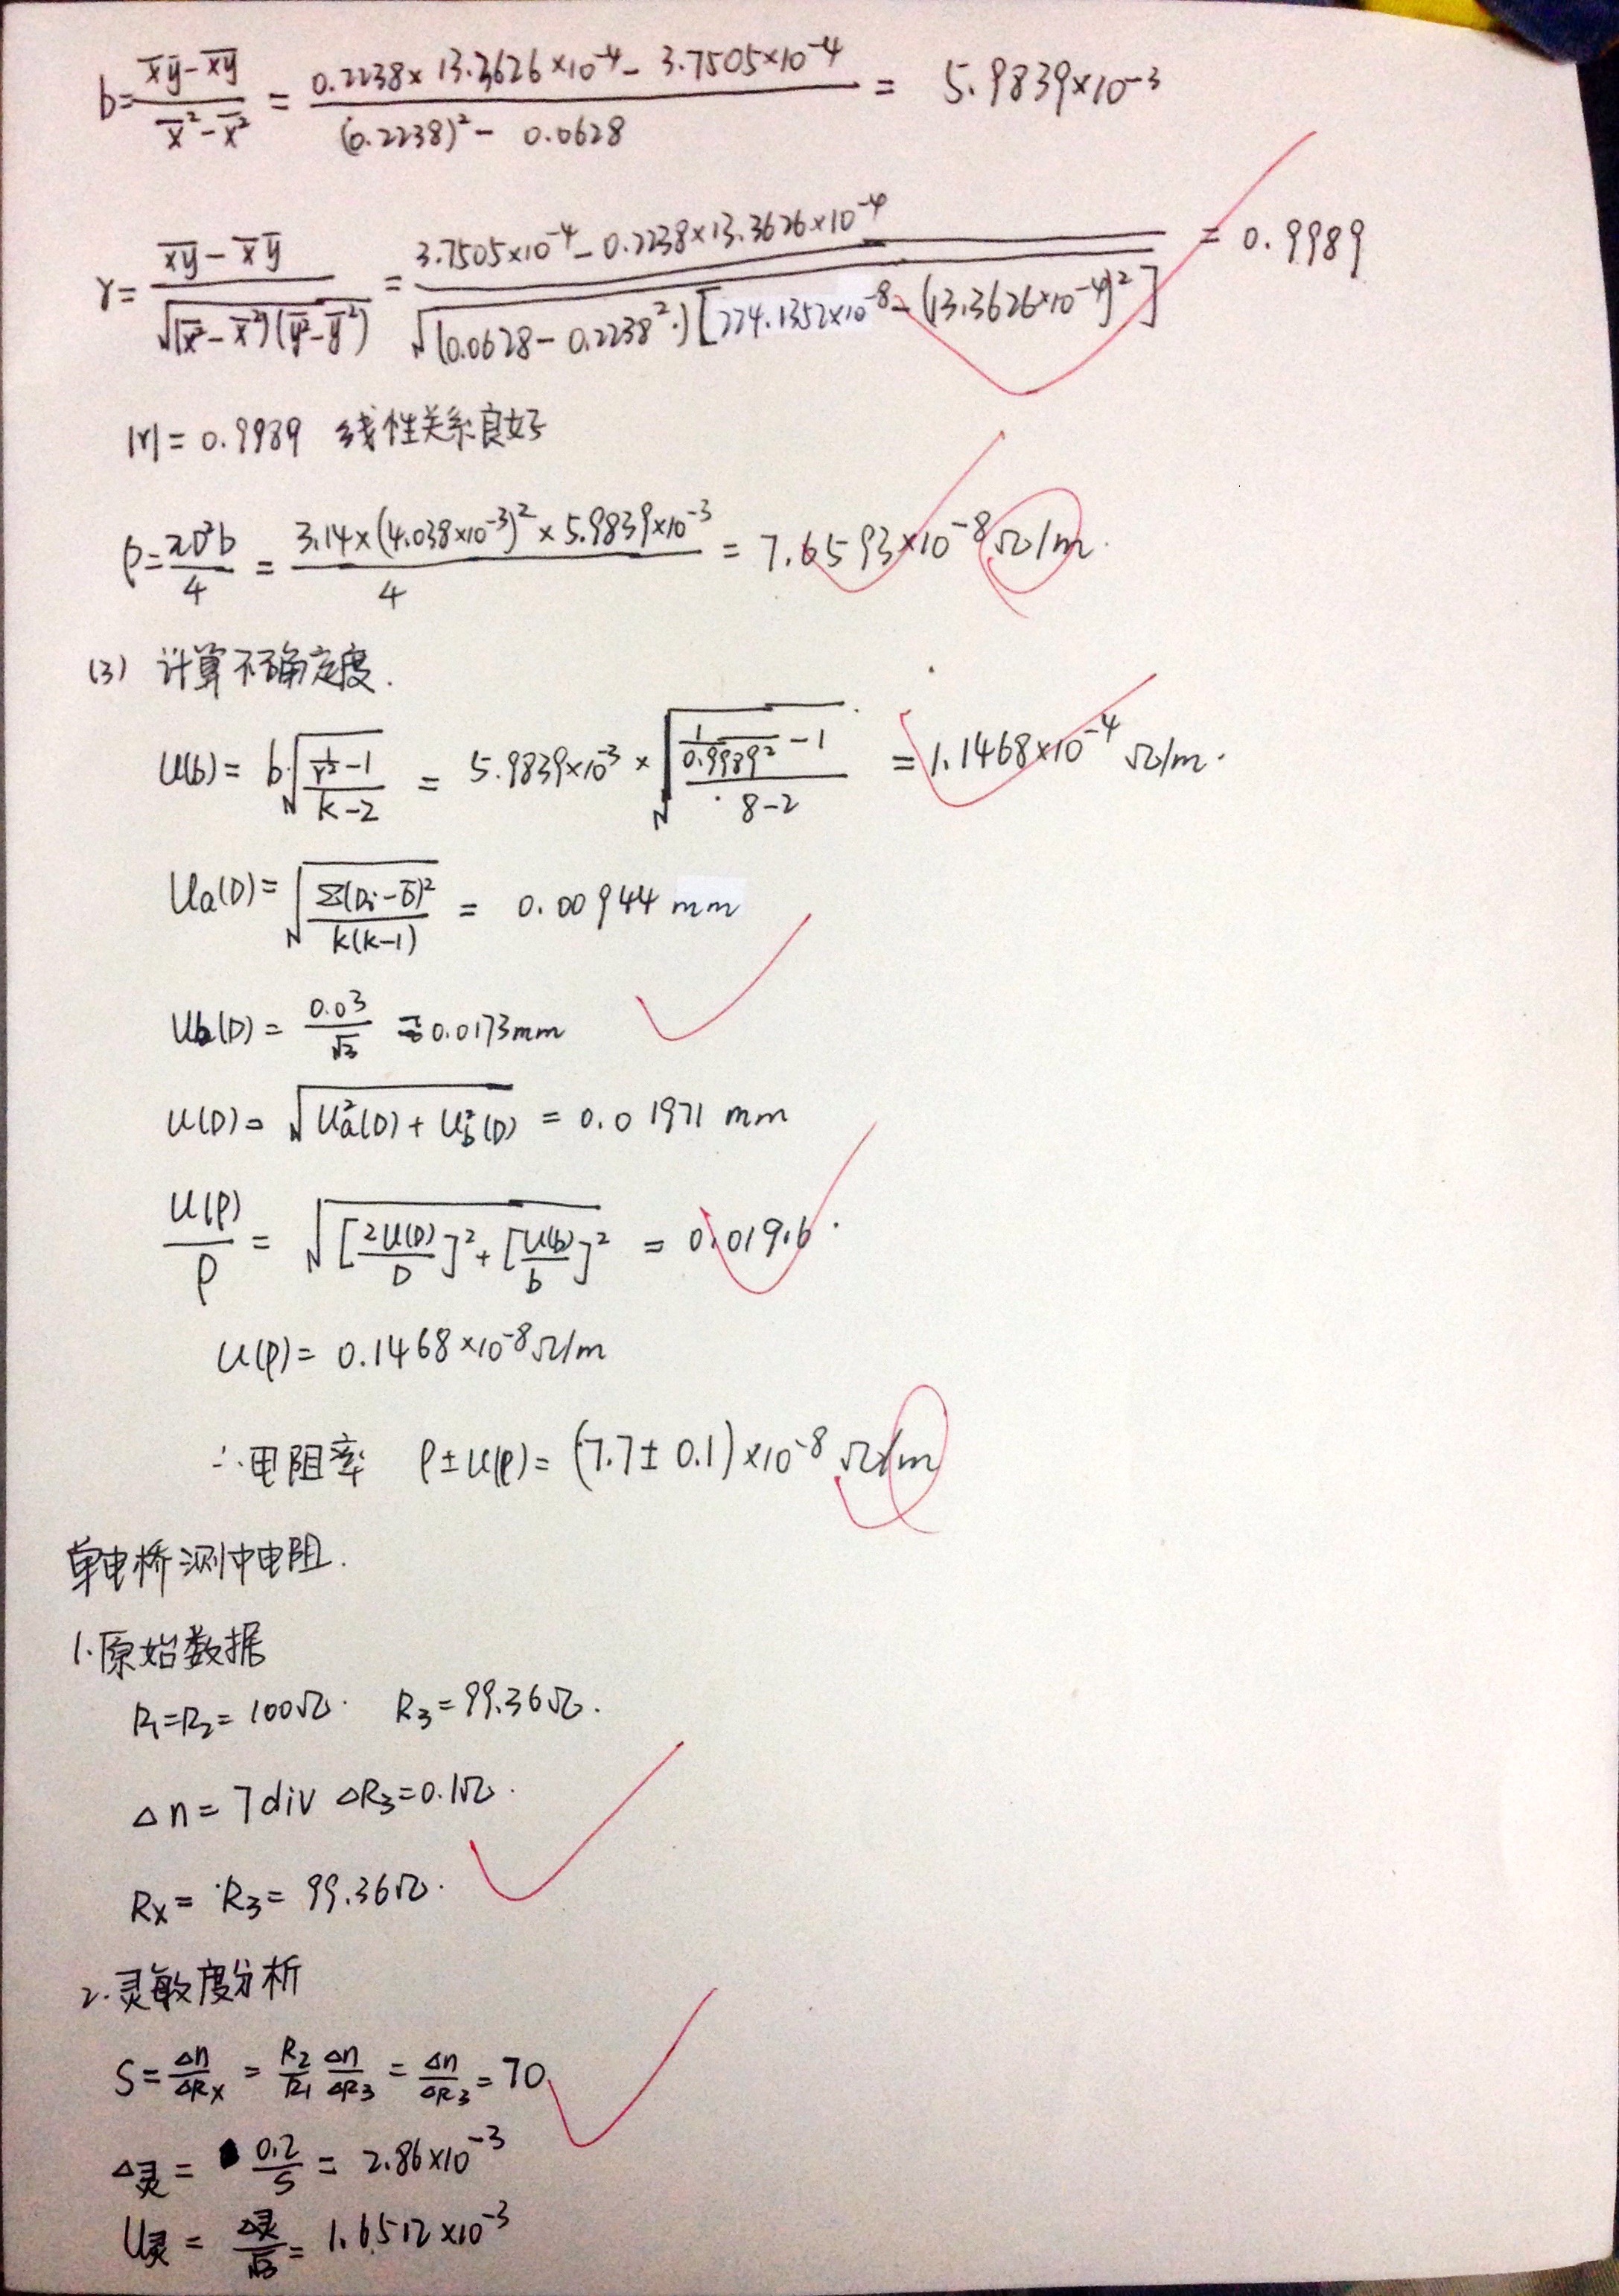 b = (x̄ȳ - \overline{xy}) / (x̄² - \overline{x²}) = (0.2238×13.3626×10⁻⁴ - 3.7505×10⁻⁴) / ((0.2238)² - 0.0628) = 5.9839×10⁻³
r = (\overline{xy} - x̄ȳ) / √((\overline{x²} - x̄²)(\overline{y²} - ȳ²)) = (3.7505×10⁻⁴ - 0.2238×13.3626×10⁻⁴) / √((0.0628 - 0.2238²)[224.1352×10⁻⁸ - (13.3626×10⁻⁴)²]) = 0.9989
|r| = 0.9989 线性关系良好
ρ = πD²b/4 = 3.14×(4.038×10⁻³)²×5.9839×10⁻³ / 4 = 7.6593×10⁻⁸ Ω/m.
(3) 计算不确定度.
u(b) = b·√((1/r² - 1)/(k-2)) = 5.9839×10⁻³ × √((1/0.9989² - 1)/(8-2)) = 1.1468×10⁻⁴ Ω/m.
Ua(D) = √(Σ(Di - D̄)²/(k(k-1))) = 0.00944 mm
Ub(D) = 0.03/√3 = 0.0173mm
u(D) = √(Ua²(D) + Ub²(D)) = 0.01971 mm
u(ρ)/ρ = √([2u(D)/D]² + [u(b)/b]²) = 0.0196.
u(ρ) = 0.1468×10⁻⁸ Ω/m
∴ 电阻率 ρ±u(ρ) = (7.7±0.1)×10⁻⁸ Ω/m
单电桥测中电阻.
1.原始数据
R₁=R₂=100Ω. R₃=99.36Ω.
Δn = 7div ΔR₃=0.1Ω.
Rx = R₃ = 99.36Ω.
2.灵敏度分析
S = Δn/ΔRx = R₂/R₁ Δn/ΔR₃ = Δn/ΔR₃ = 70
Δ灵 = 0.2/S = 2.86×10⁻³
U灵 = Δ灵/√3 = 1.6512×10⁻³